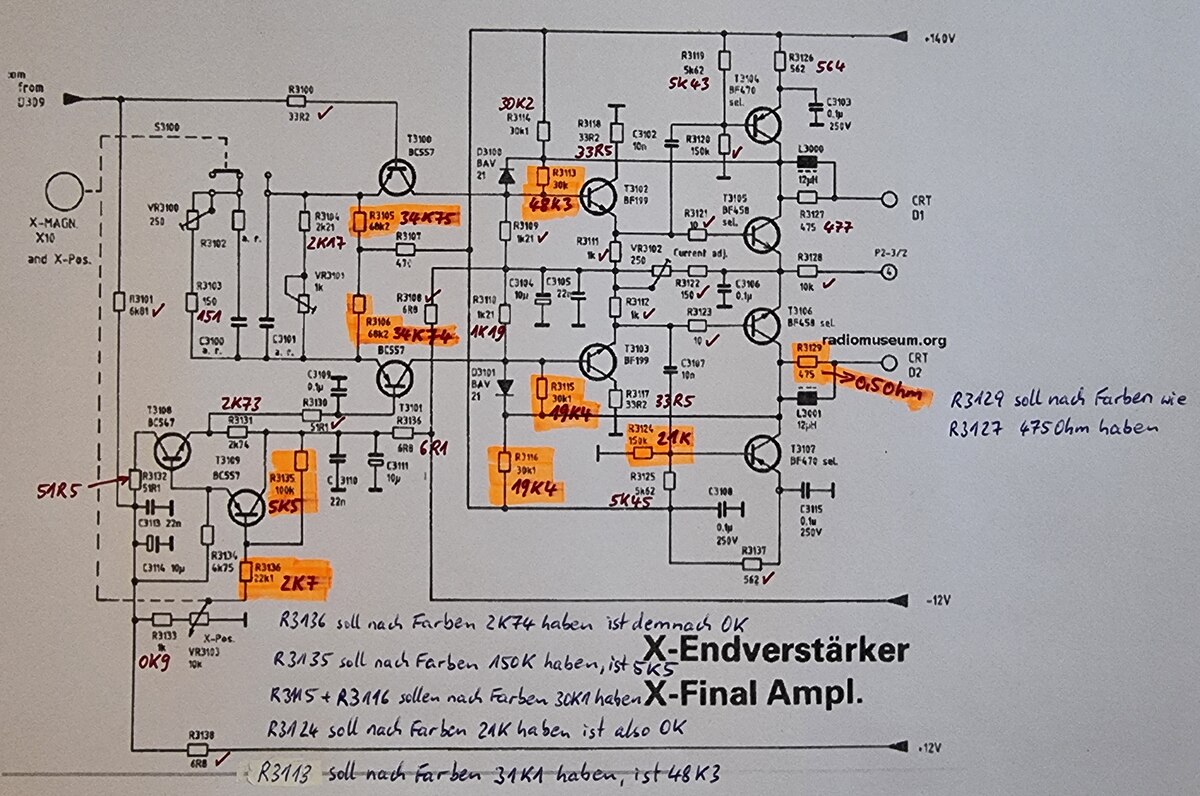 +140V
R3119
5k62
5K43
R3126
562
564
T3104
BF470
sel.
from
D309
R3100
33R2
30K2
R3114
30k1
R3118
33R2
33R5
C3102
10n
C3103
0.1µ
250V
S3100
T3100
BC557
D3100
BAV
21
R3113
30k
48K3
R3120
150k
L3000
12µH
T3102
BF199
T3105
BF458
sel.
CRT
D1
X-MAGN.
X10
and X-Pos.
VR3100
250
R3102
a. r.
R3104
2k21
2K17
R3105
68k2
34K75
R3107
47k
R3109
1k21
R3121
10
R3127
475
477
R3111
1k
VR3102
250
Current adj.
P2-3/2
4
R3103
150
151
VR3101
1k
R3101
6k81
C3104
10µ
C3105
22n
R3122
150
C3106
0,1µ
R3128
10k
R3108
6R8
R3110
1k21
1K19
R3112
1k
R3123
10
T3106
BF458 sel.
R3106
68k2
34K74
C3100
a. r.
C3101
a. r.
BC557
T3103
BF199
radiomuseum.org
R3129
475
→0,5Ohm
CRT
D2
C3107
10n
D3101
BAV
21
R3115
30k1
19K4
R3117
33R2
33R5
L3001
12µH
R3129 soll nach Farben wie
R3127 475Ohm haben
C3109
0.1µ
2K73
R3130
51R1
T3101
T3108
BC547
R3131
2k74
R3136
6R8
6R1
R3124
150k
21K
T3107
BF470 sel.
T3109
BC557
R3116
30k1
19K4
R3125
5k62
5K45
51R5
R3132
51R1
R3135
100k
5K5
C3110
22n
C3111
10µ
C3108
0.1µ
250V
C3115
0.1µ
250V
C3113 22n
C3114 10µ
R3134
4k75
R3136
22k1
2K7
R3137
562
-12V
R3133
1k
0K9
X-Pos.
VR3103
10k
R3136 soll nach Farben 2K74 haben ist demnach OK
X-Endverstärker
R3135 soll nach Farben 150K haben, ist 5K5
R3115 + R3116 sollen nach Farben 30K1 haben
X-Final Ampl.
R3124 soll nach Farben 21K haben ist also OK
R3138
6R8
+12V
R3113 soll nach Farben 31K1 haben, ist 48K3